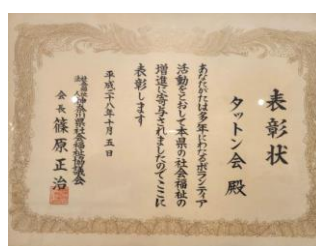 表彰状
タットン会 殿
あなたがたは多年にわたるボランティア
活動をとおして本県の社会福祉の
増進に寄与されましたのでここに
表彰します
平成二十八年十月五日
社会福祉法人 神奈川県社会福祉協議会
会長 篠原正治